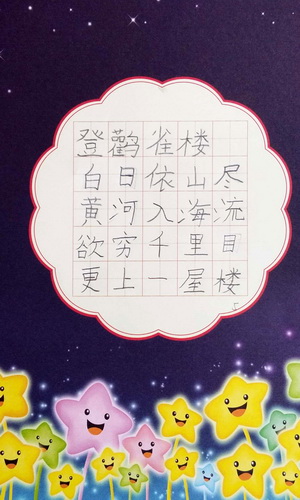 登鹳雀楼
白日依山尽
黄河入海流
欲穷千里目
更上一屋楼